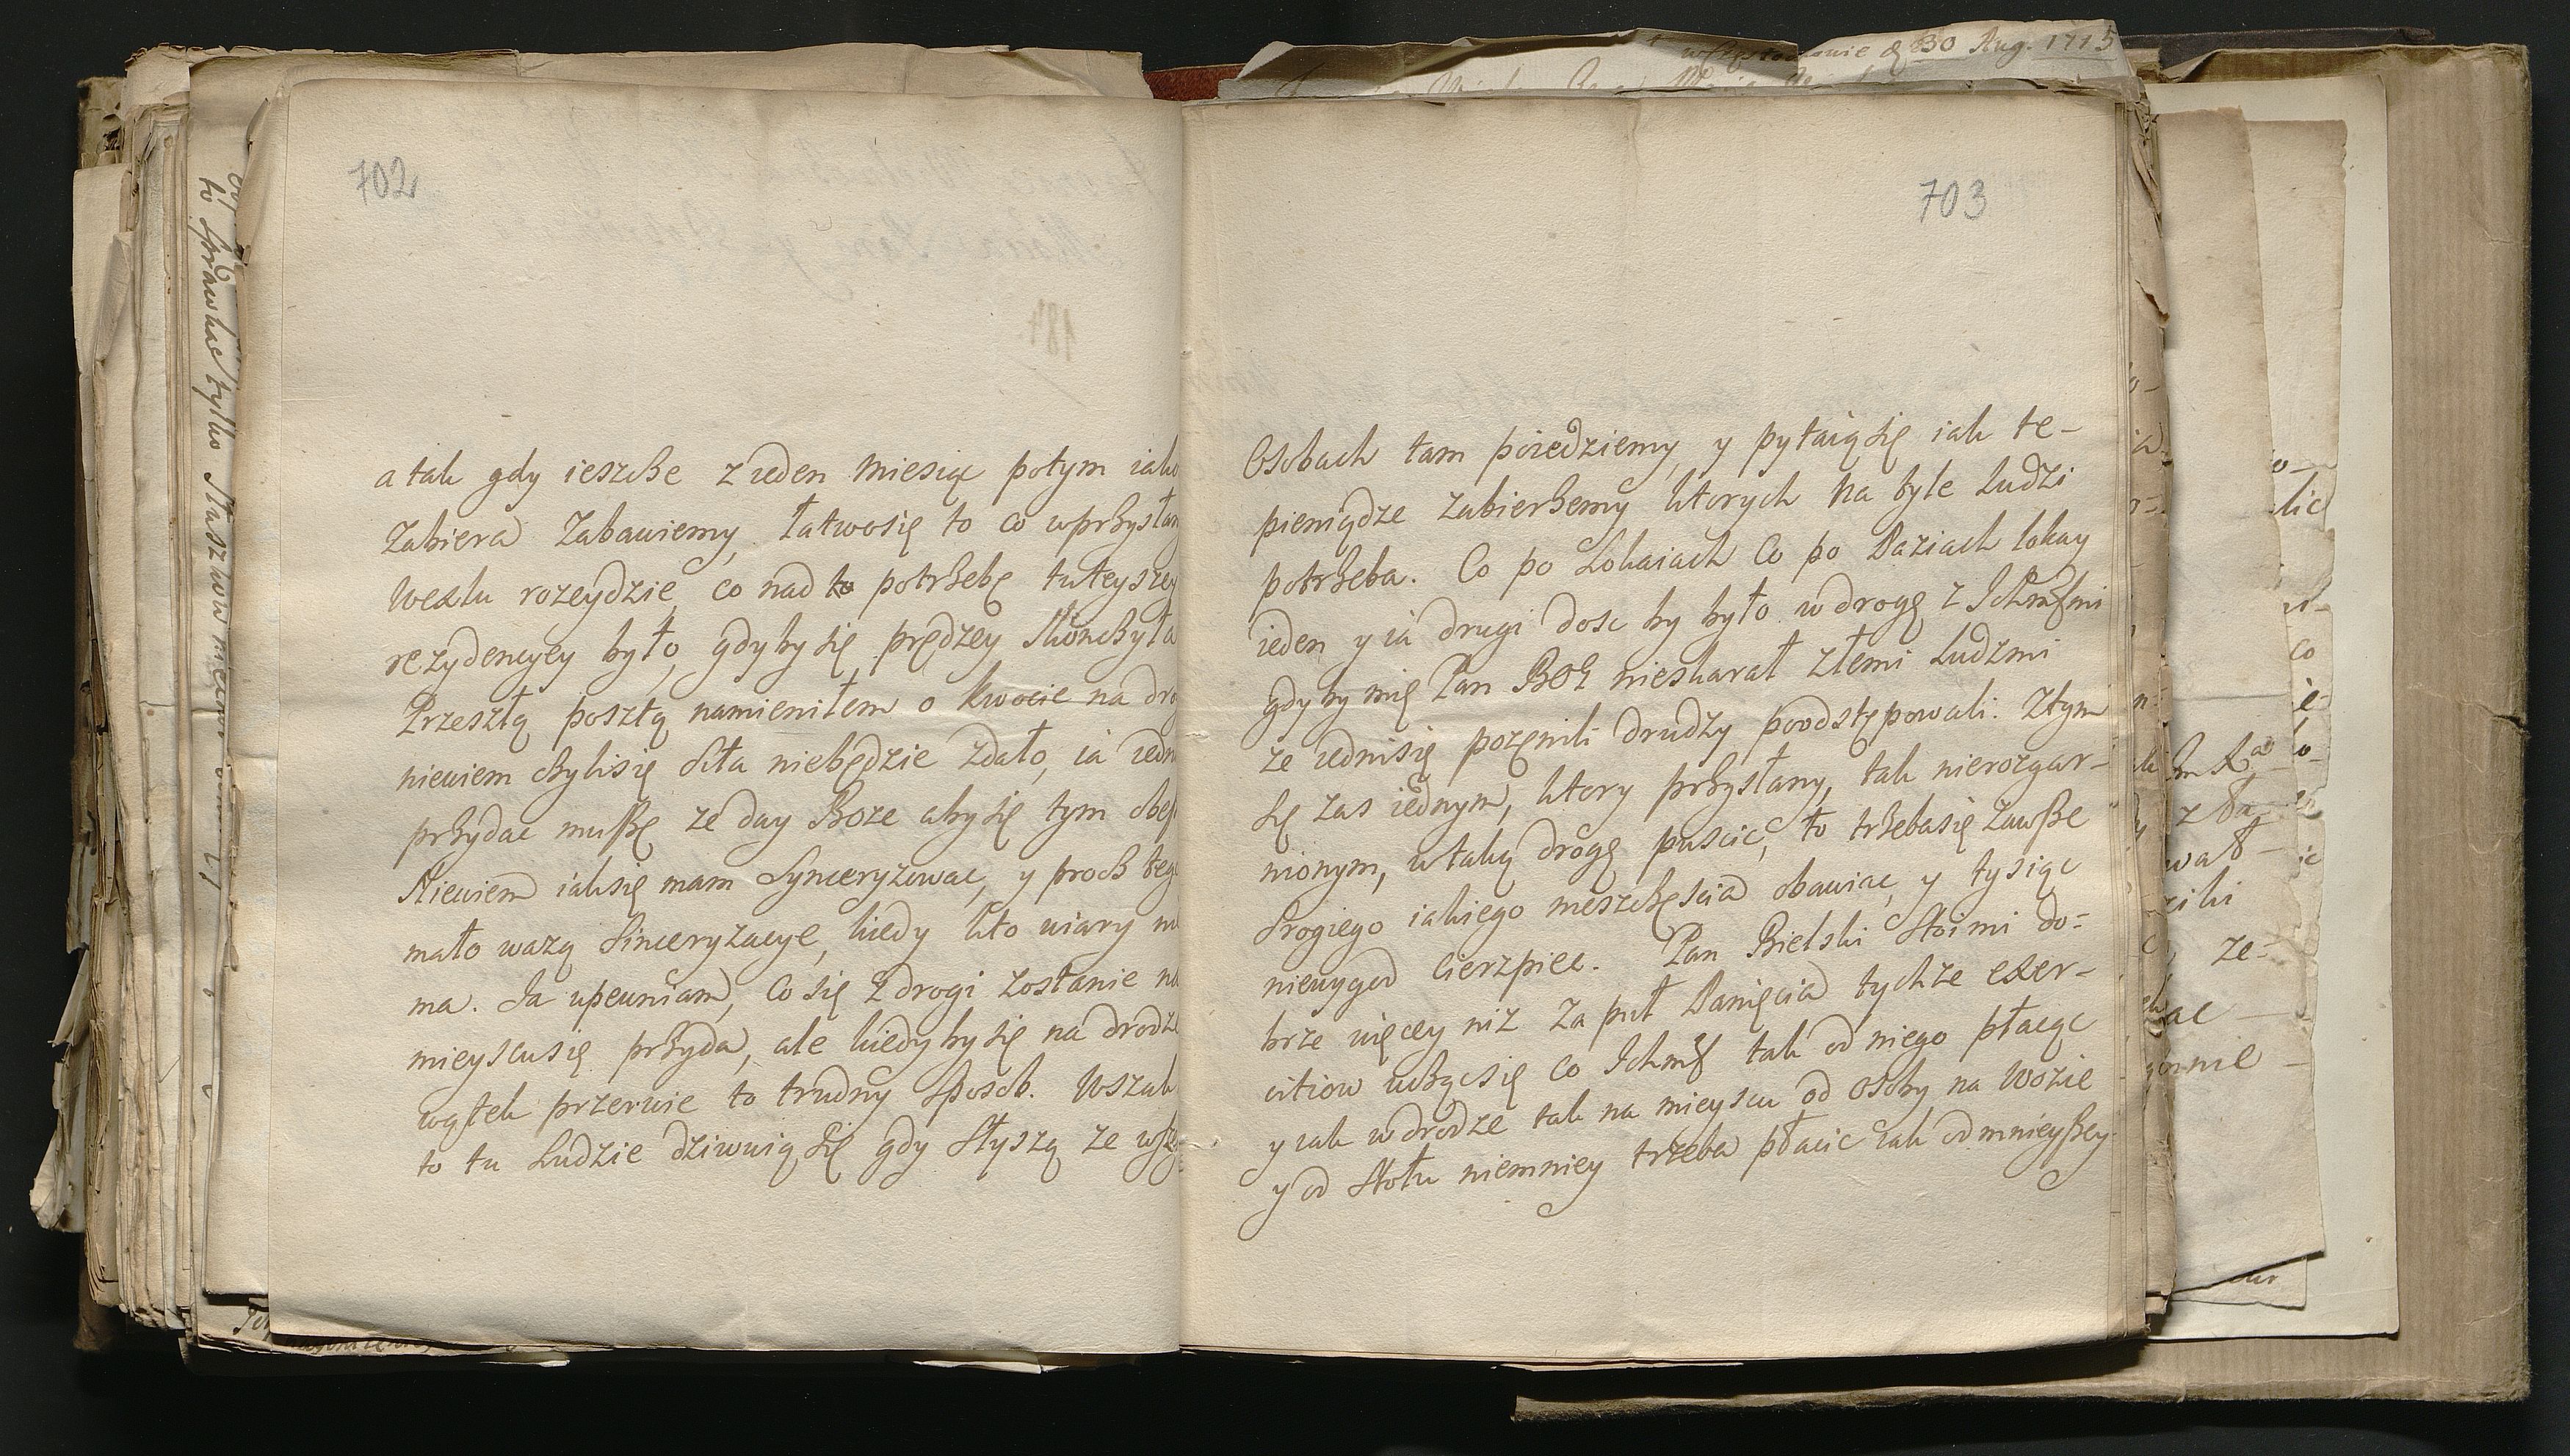 w Częstochowie d 30 Aug. 1715
702
a tak gdy ieszcze z ieden miesiąc potym iako
Zabiera Zabawiemy, łatwosię to co w przysłan
Wexlu rozeydzie, co nad to potrzebę tuteyszey
rezydencyey było, gdyby się prędzey skonczyła
Przeszłą posztą namieniłem o kwocie na dro
niewiem czylisię siła niebędzie zdało, ia iedn
przydac muszę ze day Boze aby się tym obe
Niewiem iaksię mam Synceryzowac, y procz teg
mało wazą Sinceryzacye, kiedy kto wiary nie
ma. Ja upewniam, Co się z drogi zostanie na
mieyscusię przyda, ale kiedy by się na drodze
wątek przerwie to trudny sposob. Wszak
to tu Ludzie dziwuią się gdy słyszą ze w
703
Osobach tam poiedziemy, y pytaią się iak te-
pieniądze zabierzemy ktorych na tyle Ludzi
potrzeba. Co po Lokaiach Co po Paziach lokay
ieden y ia drugi dosc by było w drogę z Ichmscmi
gdy by mię Pan BOG nieskarał złemi Ludzmi
ze iednisię pozenili drudzy poodstępowali. Ztym
się zas iednym, ktory przysłany, tak nierozgar-
nionym, w taką drogę puscic, to trzebasię zawsze
srogiego iakiego nieszczęscia obawiac, y tysiąc
niewygod cierzpiec. Pan Bielski stoi mi do=
brze więcey niz za puł Panięcia tychze exer-
citiow ucząc się co Ichmsc tak od niego płacąc
y iak w drodze tak na mieyscu od osoby na wozie
y od stołu niemniey trzeba płacic iak od mnieyszey